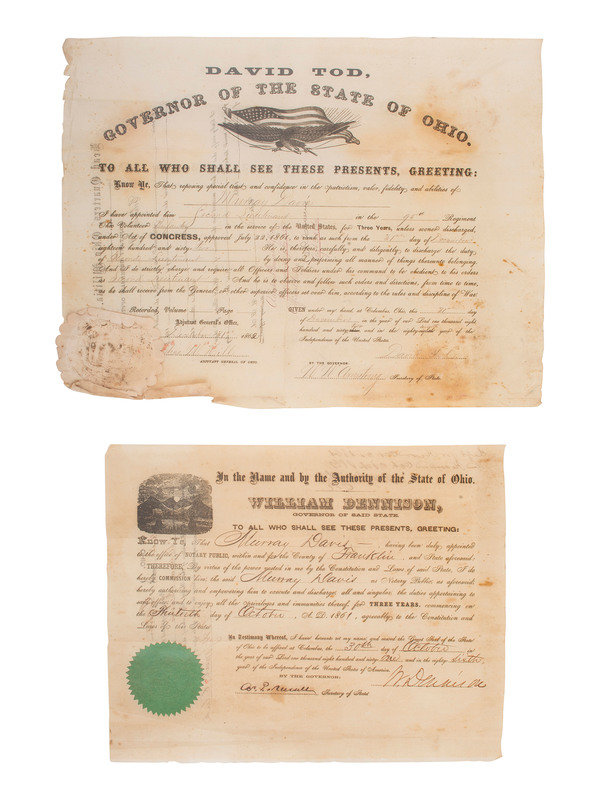 DAVID TOD,
GOVERNOR OF THE STATE OF OHIO.
TO ALL WHO SHALL SEE THESE PRESENTS, GREETING:
Know Ye, That reposing special trust and confidence in the patriotism, valor, fidelity, and abilities of
Murray Davis
I have appointed him Second Lieutenant in the 95th Regiment
Ohio Volunteer in the service of the United States, for Three Years, unless sooner discharged,
under Act of CONGRESS, approved July 22, 1861, to rank as such from the day of
eighteen hundred and sixty He is, therefore, carefully and diligently, to discharge the duty,
of Second Lieutenant by doing and performing all manner of things thereunto belonging.
And I do strictly charge and require all Officers and Soldiers under his command to be obedient to his orders
as Second Lieutenant And he is to observe and follow such orders and directions, from time to time,
as he shall receive from the General, or other superior officers set over him, according to the rules and discipline of War.
Recorded, Volume Page
Adjutant General's Office,
1862
ADJUTANT GENERAL OF OHIO.
GIVEN under my hand at Columbus, Ohio, this day
of in the year of our Lord one thousand eight
hundred and sixty and in the eighty year of the
Independence of the United States.
David Tod
BY THE GOVERNOR:
W. W. Armstrong Secretary of State.
In the Name and by the Authority of the State of Ohio.
WILLIAM DENNISON,
GOVERNOR OF SAID STATE.
TO ALL WHO SHALL SEE THESE PRESENTS, GREETING:
Know Ye, That Murray Davis having been duly appointed
to the office of NOTARY PUBLIC, within and for the County of Franklin and State aforesaid:
THEREFORE, By virtue of the power vested in me by the Constitution and Laws of said State, I do
hereby COMMISSION him, the said Murray Davis as Notary Public as aforesaid;
hereby authorizing and empowering him to execute and discharge, all and singular, the duties appertaining to
said office, and to enjoy all the privileges and immunities thereof, for THREE YEARS, commencing on
the Thirtieth day of October, A. D. 1861, agreeably to the Constitution and
Laws of the State.
In Testimony Whereof, I have hereunto set my name, and caused the Great Seal of the State
of Ohio to be affixed at Columbus, the 30th day of October in
the year of our Lord one thousand eight hundred and sixty one and in the eighty sixth
year of the Independence of the United States of America.
BY THE GOVERNOR: W Dennison
Secretary of State